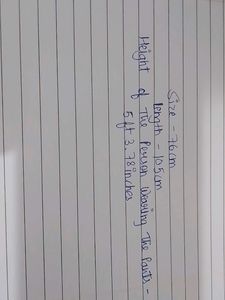 Size - 76cm
length - 105cm
Height of The Person Wearing The Pants -
5 ft 3.78 inches